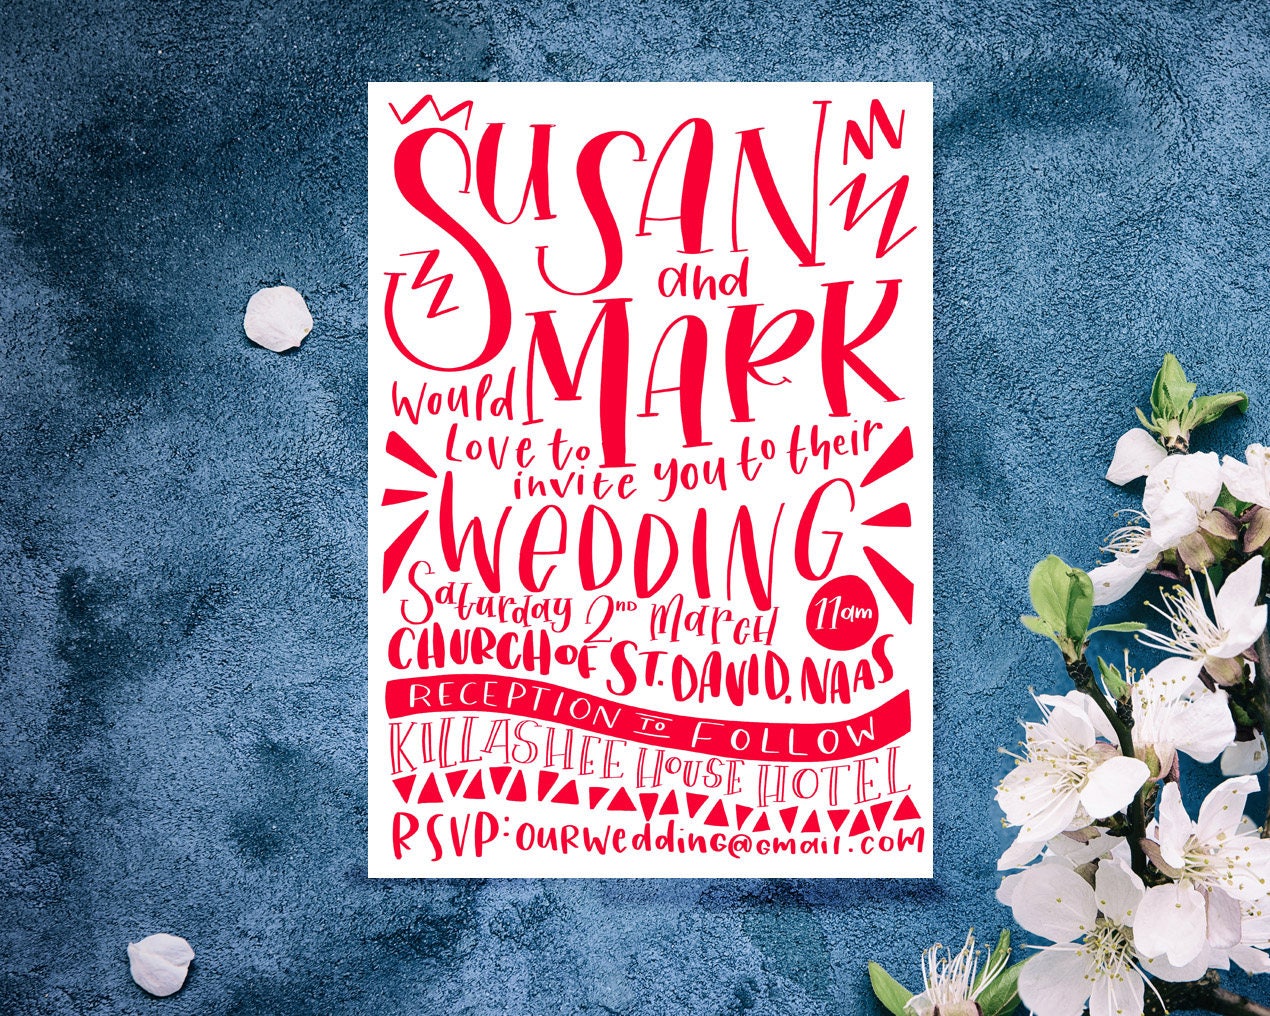 SUSAN
and
MARK
would
Love to
invite you to their
WeDDING
Saturday 2ND March 11am
CHURCH OF ST. DAVID, NAAS
RECEPTION TO FOLLOW
KILLASHEE HOUSE HOTEL
RSVP: OURWedding@Gmail.com